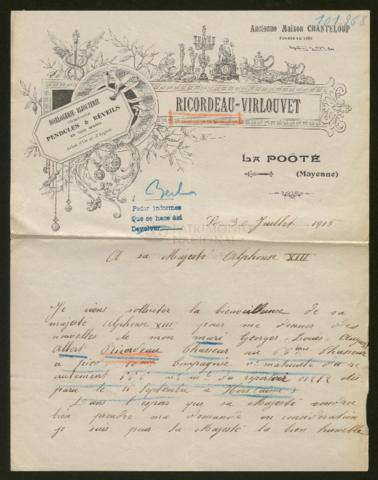 101.958
Ancienne Maison CHANTELOUP
HORLOGERIE BIJOUTERIE
PENDULES & RÉVEILS
RICORDEAU-VIRLOUVET
LA POÔTÉ
(Mayenne)
Berlin
Pedir informes
Que se hace así
Devolver
Le 30 Juillet 1915
A sa Majesté Alphonse XIII
Je viens solliter la bienveillance de sa
majesté Alphonse XIII pour me donner des
nouvelles de mon mari Georges, Louis,
Albert Ricordeau Chasseur au 66ème Chasseur
à pied Compagnie Matricule du
recrutement
paru le 14 Septembre à
Dans l'espoir que sa Majesté voudra
bien prendre ma demande en considération
je suis pour la Majesté la bien humble